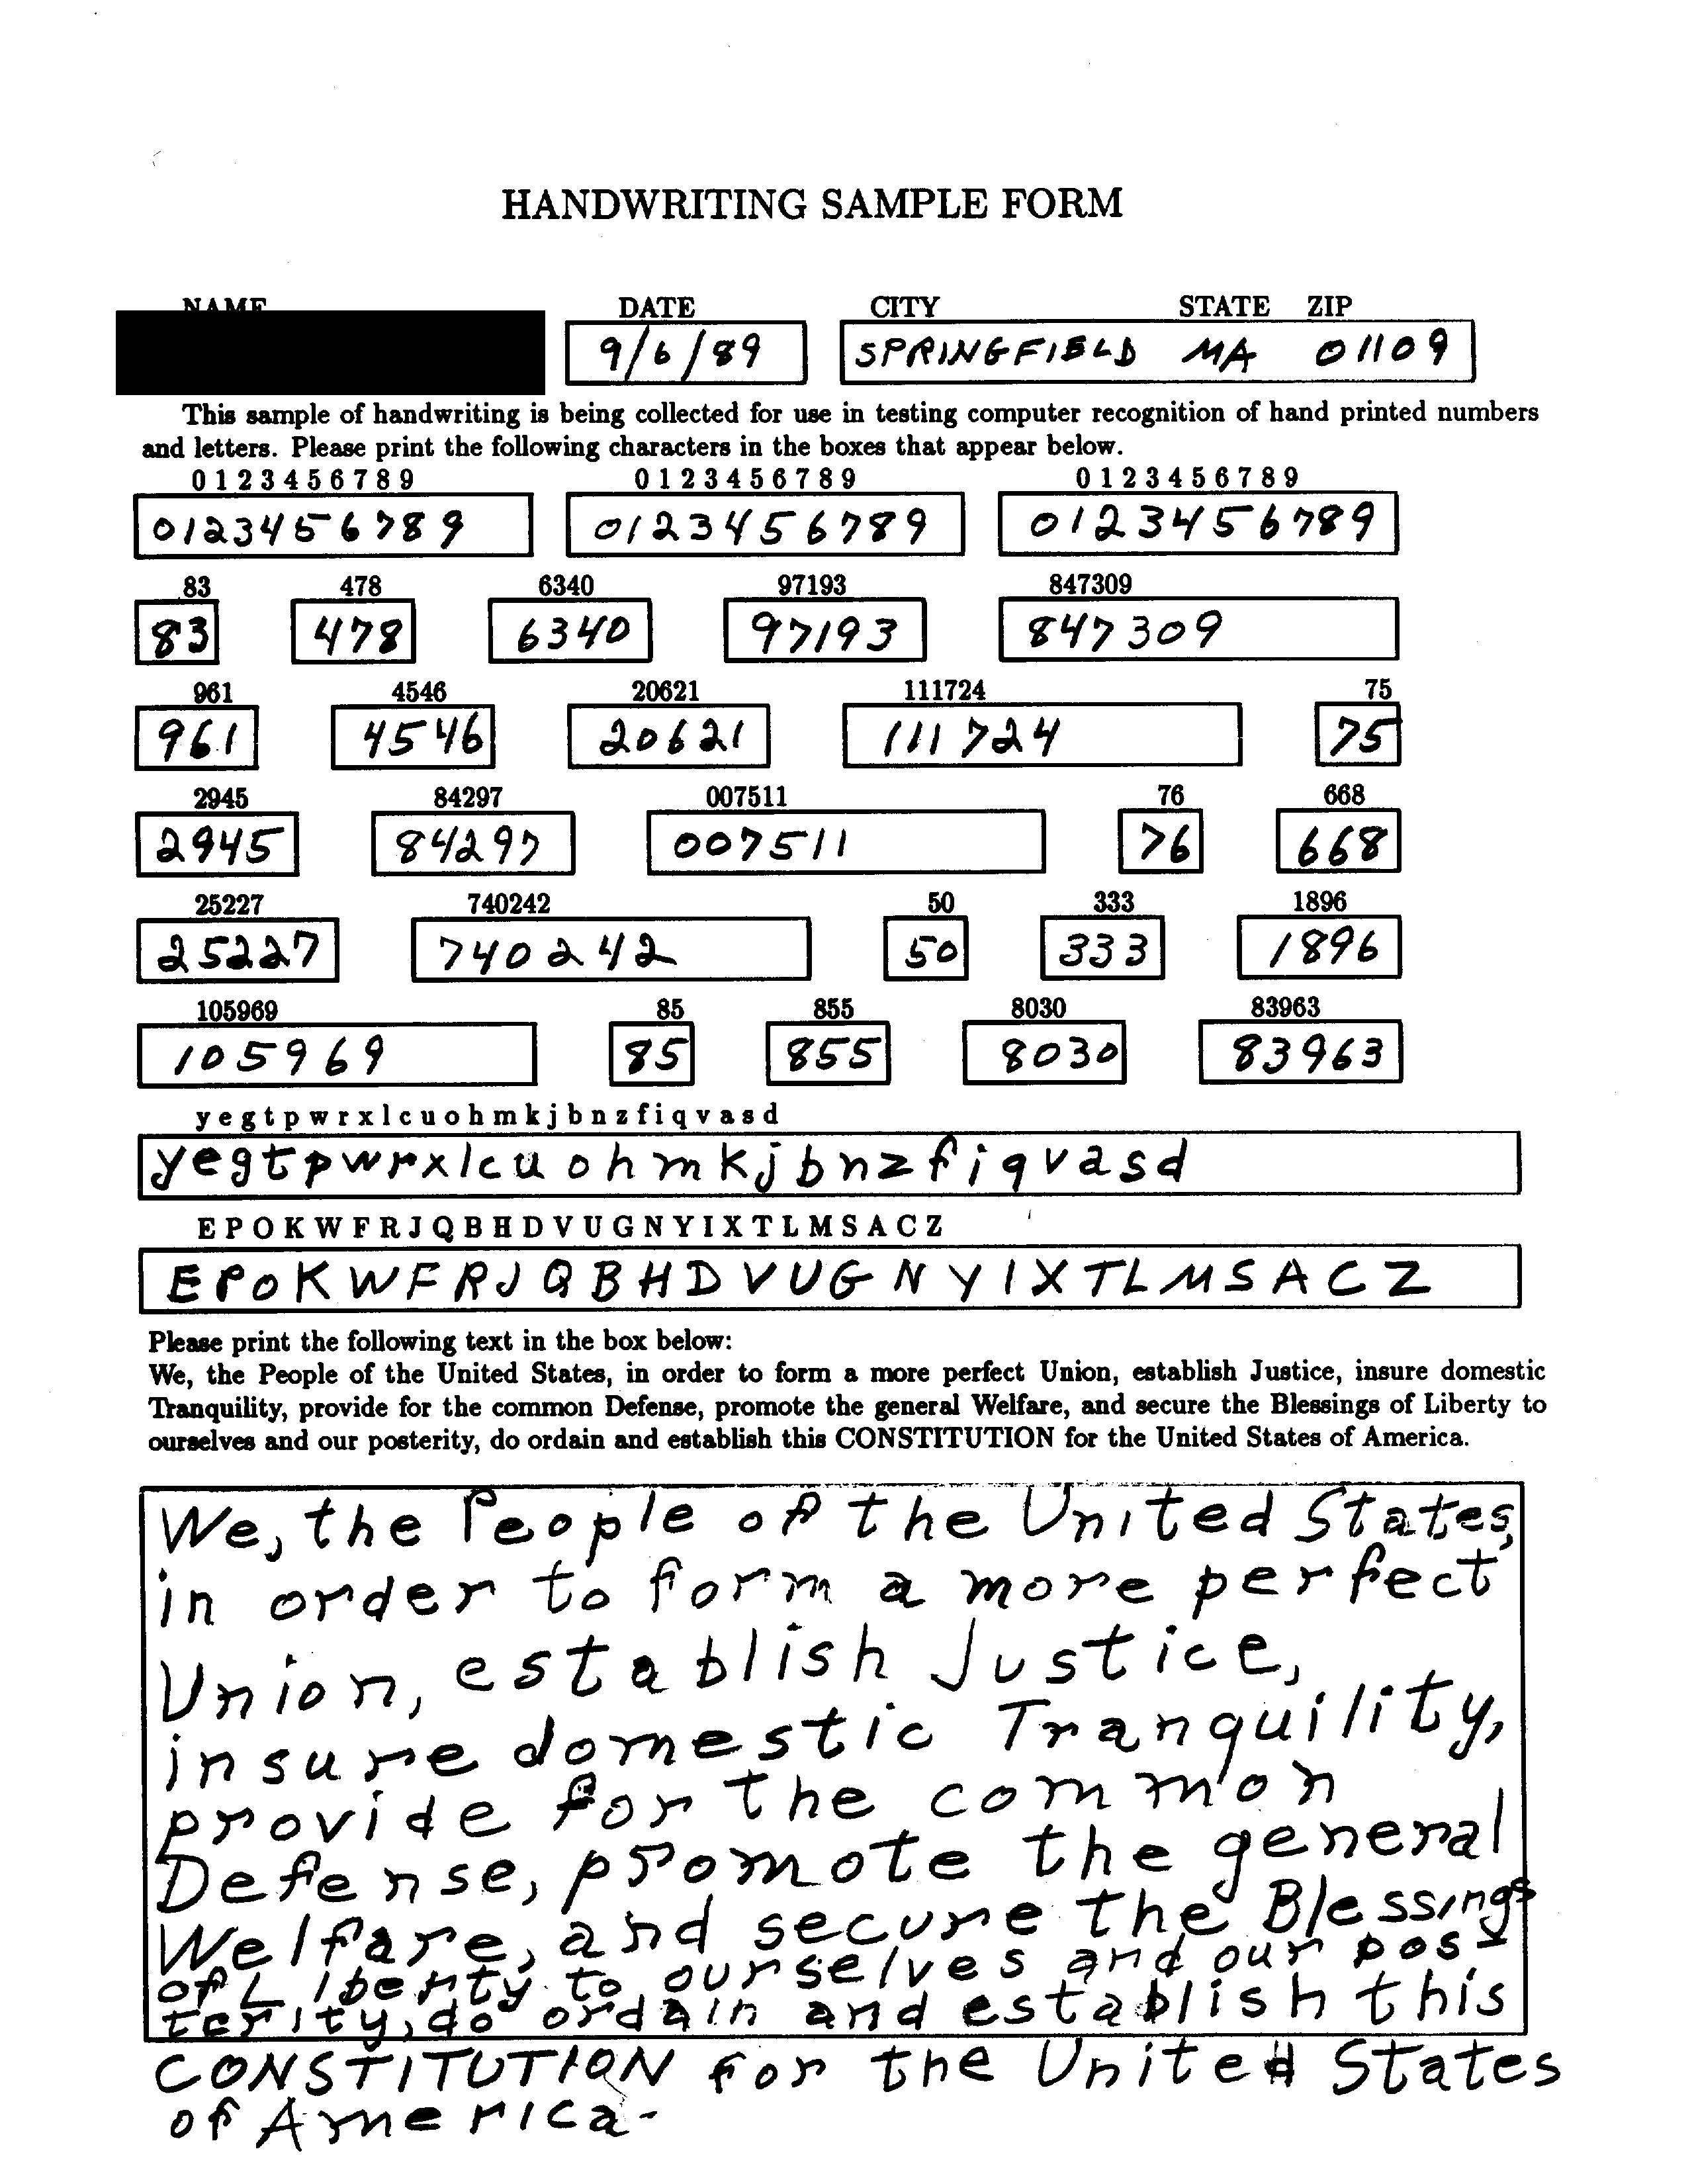 HANDWRITING SAMPLE FORM
NAME DATE CITY STATE ZIP
9/6/89 SPRINGFIELD MA 01109
This sample of handwriting is being collected for use in testing computer recognition of hand printed numbers
and letters. Please print the following characters in the boxes that appear below.
0 1 2 3 4 5 6 7 8 9 0 1 2 3 4 5 6 7 8 9 0 1 2 3 4 5 6 7 8 9
0123456789 0123456789 0123456789
83 478 6340 97193 847309
83 478 6340 97193 847309
961 4546 20621 111724 75
961 4546 20621 111724 75
2945 84297 007511 76 668
2945 84297 007511 76 668
25227 740242 50 333 1896
25227 740242 50 333 1896
105969 85 855 8030 83963
105969 85 855 8030 83963
y e g t p w r x l c u o h m k j b n z f i q v a s d
yegtpwrxlcuohmkjbnzfiqvasd
E P O K W F R J Q B H D V U G N Y I X T L M S A C Z
EPOKWFRJQBHDVUGNYIXTLMSACZ
Please print the following text in the box below:
We, the People of the United States, in order to form a more perfect Union, establish Justice, insure domestic
Tranquility, provide for the common Defense, promote the general Welfare, and secure the Blessings of Liberty to
ourselves and our posterity, do ordain and establish this CONSTITUTION for the United States of America.
We, the People of the United States,
in order to form a more perfect
Union, establish Justice,
insure domestic Tranquility,
provide for the common
Defense, promote the general
Welfare, and secure the Blessings
of Liberty to ourselves and our pos-
terity, do ordain and establish this
CONSTITUTION for the United States
of America-